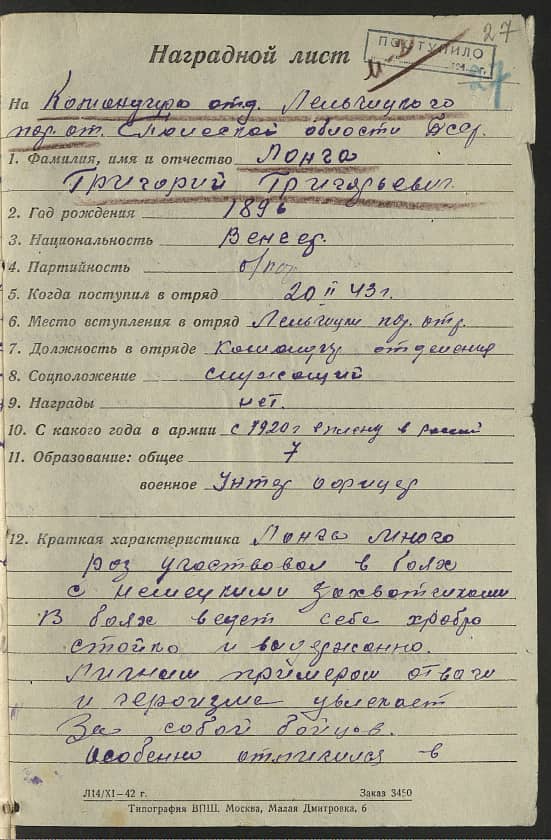 27
ПОСТУПИЛО
27
Наградной лист
На Командира отд. Лельчицкого
пар. от. Полесской области Бсср.
1. Фамилия, имя и отчество Лонга
Григорий Григорьевич.
2. Год рождения 1896
3. Национальность Венгер.
4. Партийность б/пар
5. Когда поступил в отряд 20 II 43 г.
6. Место вступления в отряд Лельчицкий пар. отр.
7. Должность в отряде Командир отделения
8. Соцположение служащий
9. Награды нет.
10. С какого года в армии с 1920 г в плену в России
11. Образование: общее 7
военное Унтер офицер
12. Краткая характеристика Лонга много
раз участвовал в боях
с немецкими захватчиками.
В боях ведет себя храбро
стойко и выдержанно.
Личным примером отваги
и героизма увлекает
За собой бойцов.
Особенно отличился в
Л14/XI—42 г. Заказ 3450
Типография ВПШ. Москва, Малая Дмитровка, 6